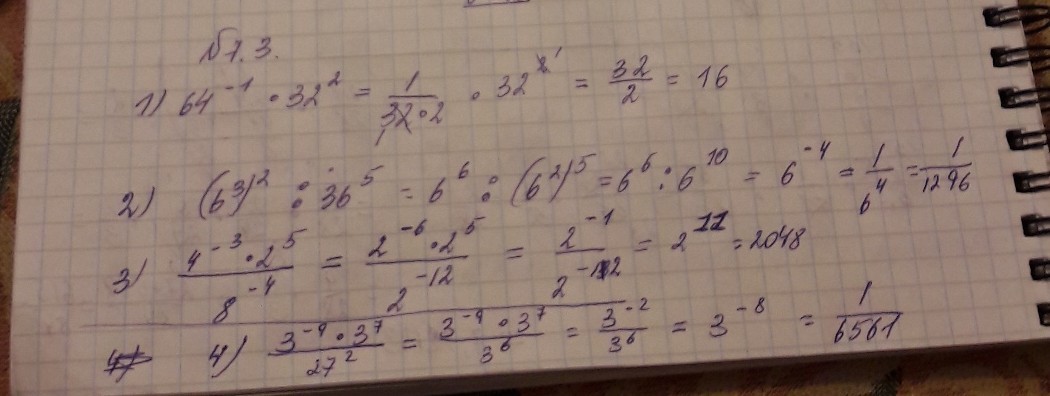 №7.3.
1) 64⁻¹ · 32² = 1/(32·2) · 32² ¹ = 32/2 = 16
2) (6³)² : 36⁵ = 6⁶ : (6²)⁵ = 6⁶ : 6¹⁰ = 6⁻⁴ = 1/6⁴ = 1/1296
3) (4⁻³ · 2⁵)/8⁻⁴ = (2⁻⁶ · 2⁵)/2⁻¹² = 2⁻¹/2⁻¹² = 2¹¹ = 2048
4) 4) (3⁻⁹ · 3⁷)/27² = (3⁻⁹ · 3⁷)/3⁶ = 3⁻²/3⁶ = 3⁻⁸ = 1/6561